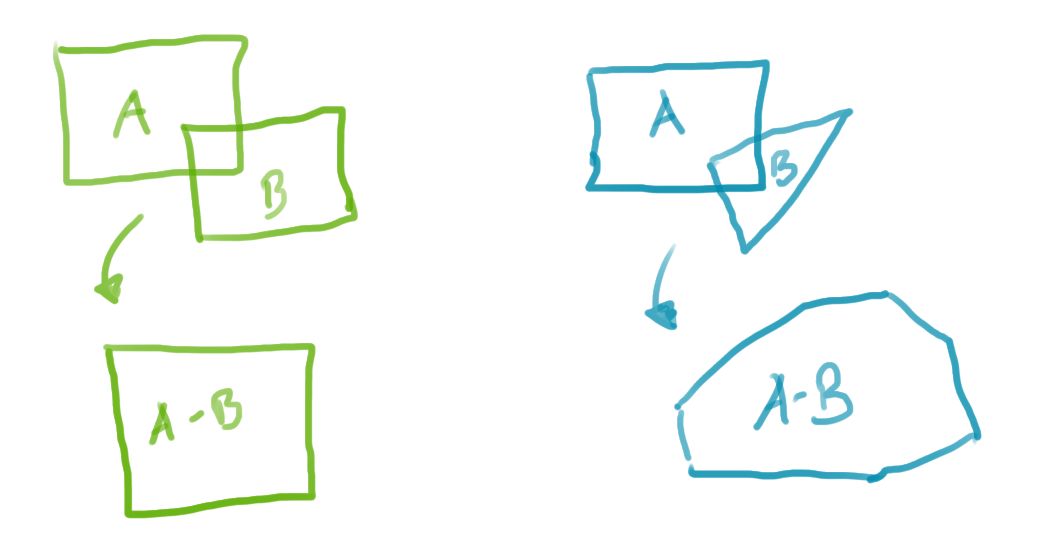 A
B
A-B
A
B
A-B